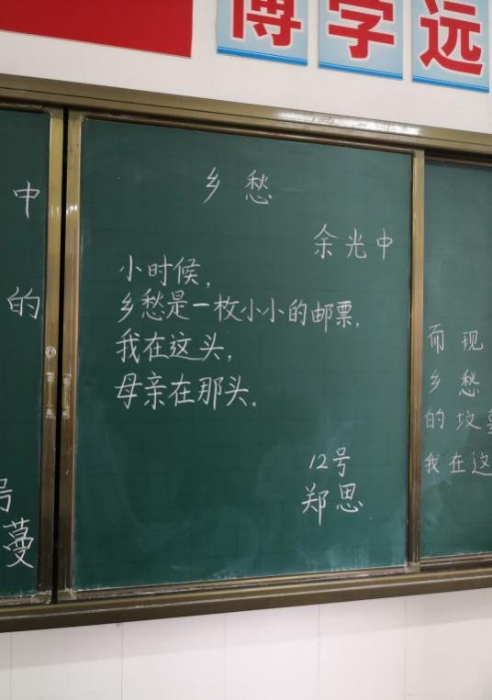 博学远
中
的
号
蔓
乡愁
余光中
小时候,
乡愁是一枚小小的邮票,
我在这头,
母亲在那头.
12号
郑思
而现
乡愁
的坟
我在这